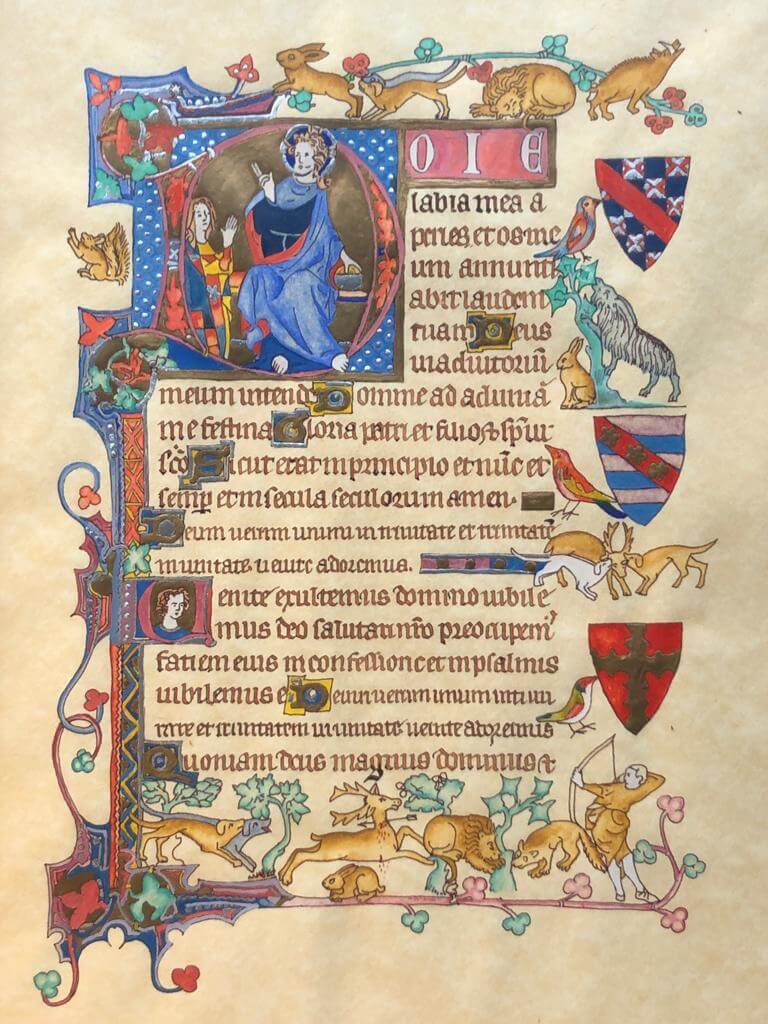 DOIE
labia mea a
peries, et os me
um annunti
abit laudem
tuam Deus
in adiutoriū
meum intende Domine ad adiuuā
me festina Gloria patri et filio & spiri
scō Sicut erat in principio et nūc et
semp et in secula seculorum amen.
Deum uerum unum in trinitate et trinitatē
in unitate uenite adoremus.
Venite exultemus domino iubile
mus deo salutari nrō preocupem⁹
fatiem eius in confessione et in psalmis
iubilemus ei Deum uerum unum in tri ni
tate et trinitatem in unitate uenite adoremus
Quoniam deus magnus dominus &